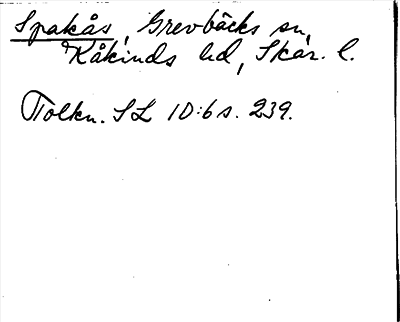 Spakås, Grevbäcks sn,
Kåkinds hd, Skar. l.
Tolkn. SL 10:6 s. 239.